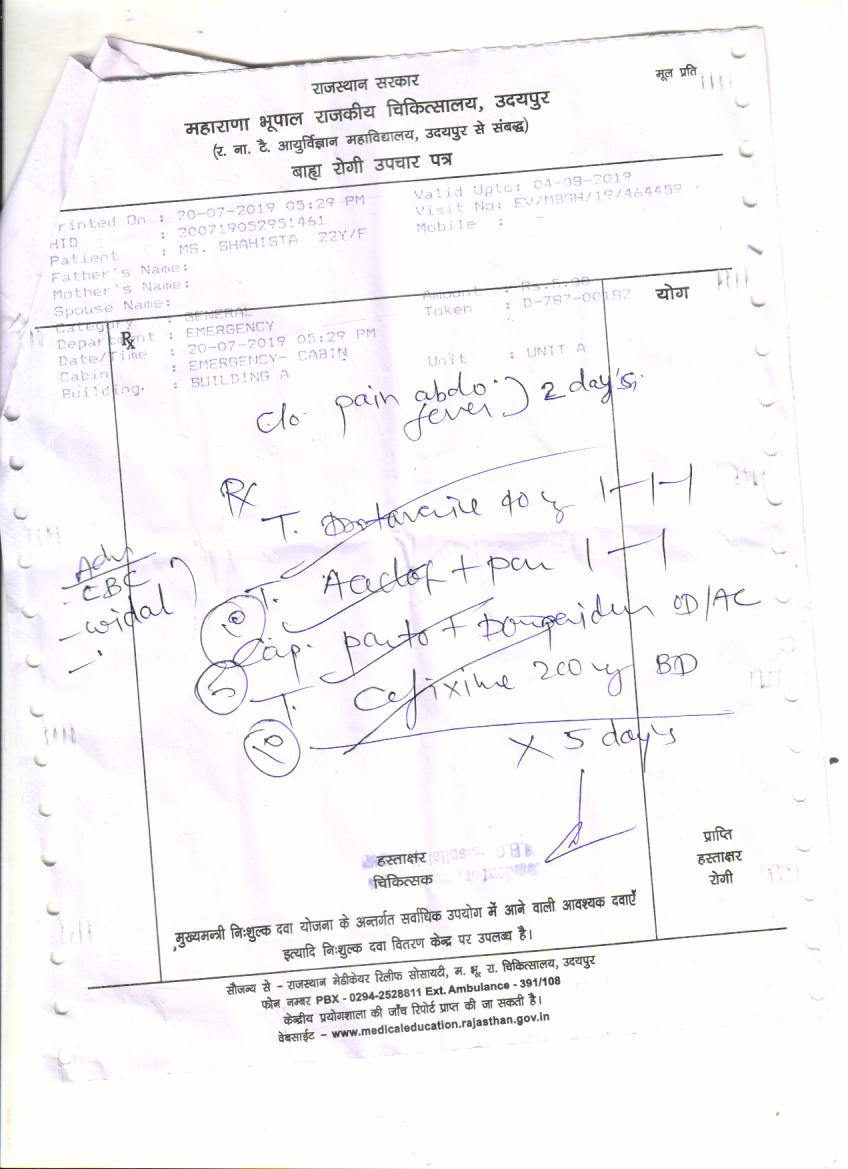 राजस्थान सरकार
मूल प्रति
महाराणा भूपाल राजकीय चिकित्सालय, उदयपुर
(र. ना. टै. आयुर्विज्ञान महाविद्यालय, उदयपुर से संबद्ध)
बाह्य रोगी उपचार पत्र
rinted On : 20-07-2019 05:29 PM
Valid Upto: 04-08-2019
HID : 200719052951461
Visit No: EV/MBGH/19/464459
Patient : MS. SHAHISTA 22Y/F
Mobile : -
Father's Name:
Mother's Name:
Spouse Name:
Amount : Rs.5.00
योग
Category : GENERAL
Token : D-787-00182
Department : EMERGENCY
Rx
Date/Time : 20-07-2019 05:29 PM
Cabin : EMERGENCY- CABIN
Unit : UNIT A
Building. : BUILDING A
C/o pain abdo.
fever) 2 day's.
Rx
T. 40 1-1-1
Adv
CBC
- widal
T. + 1-1
(10)
Cap. panto + OD/AC
(5)
T. Cefixime 200 mg BD
(10)
x 5 days
हस्ताक्षर
चिकित्सक
प्राप्ति
हस्ताक्षर
रोगी
मुख्यमन्त्री निःशुल्क दवा योजना के अन्तर्गत सर्वाधिक उपयोग में आने वाली आवश्यक दवाएँ
इत्यादि निःशुल्क दवा वितरण केन्द्र पर उपलब्ध है।
सौजन्य से - राजस्थान मेडीकेयर रिलीफ सोसायटी, म. भू. रा. चिकित्सालय, उदयपुर
फोन नम्बर PBX - 0294-2528811 Ext. Ambulance - 391/108
केन्द्रीय प्रयोगशाला की जाँच रिपोर्ट प्राप्त की जा सकती है।
वेबसाईट - www.medicaleducation.rajasthan.gov.in